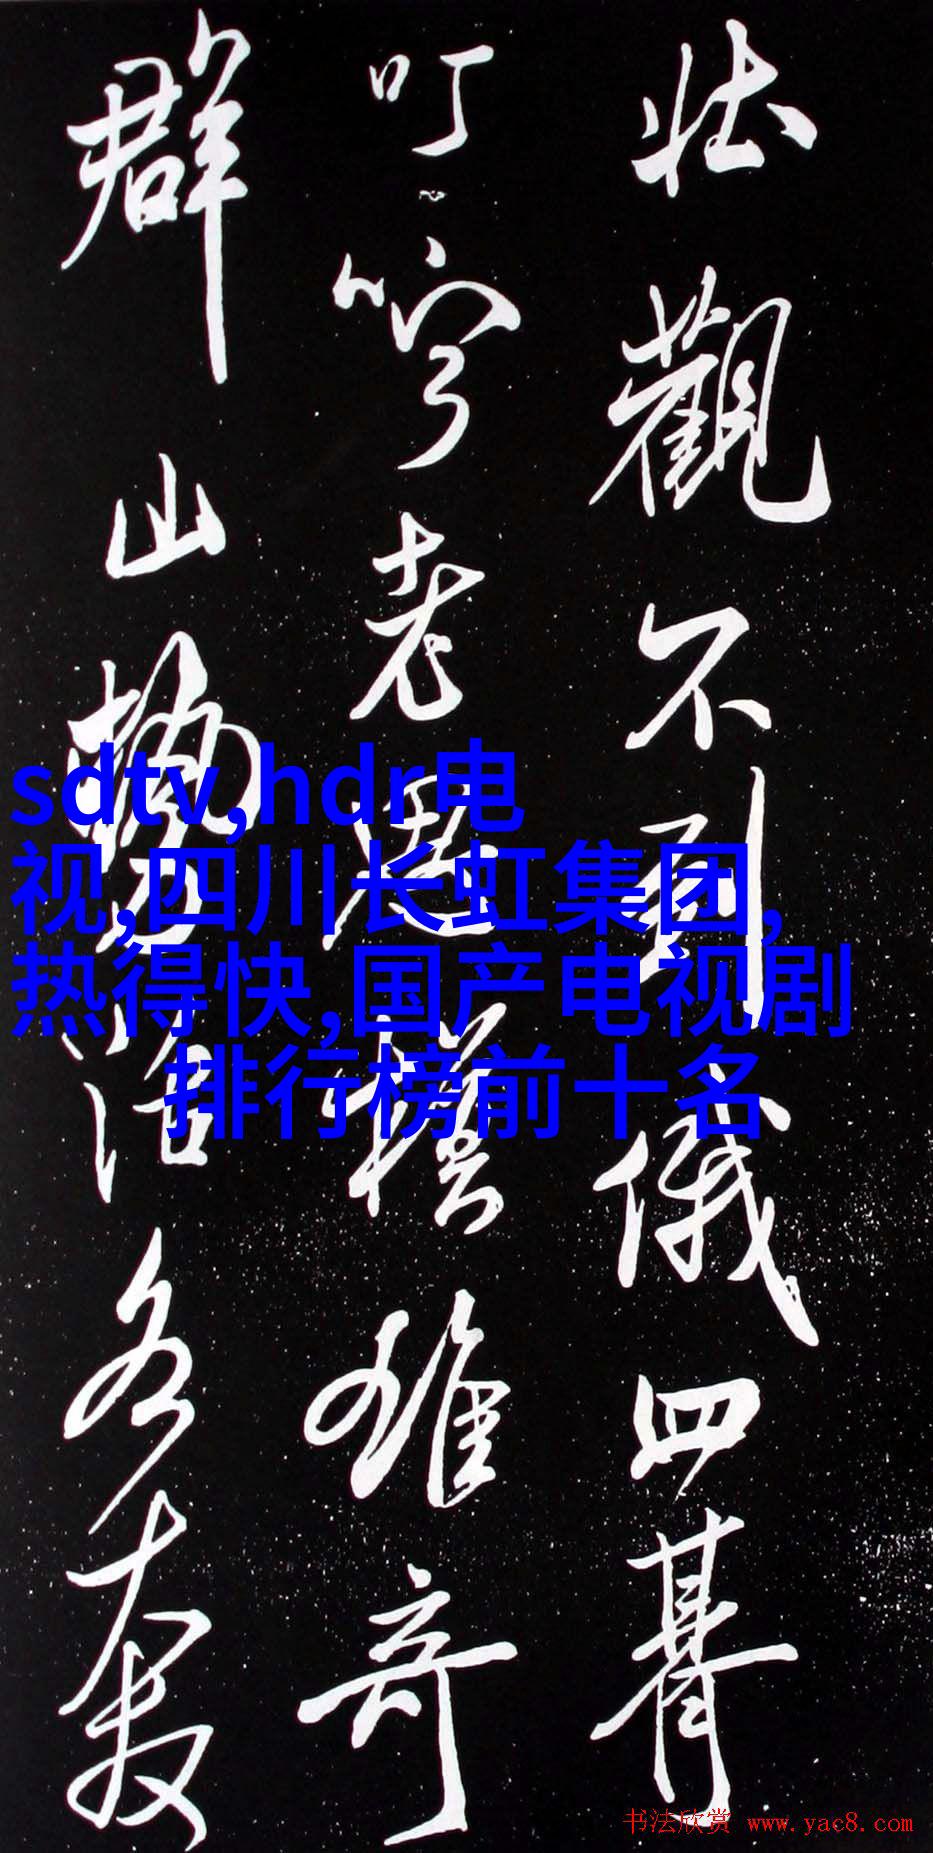 壯觀不到儀四
叮寧老雄奇
群山各
sdtv,hdr电
视,四川长虹集团,
热得快,国产电视剧
排行榜前十名
书法欣赏 www.yac8.com